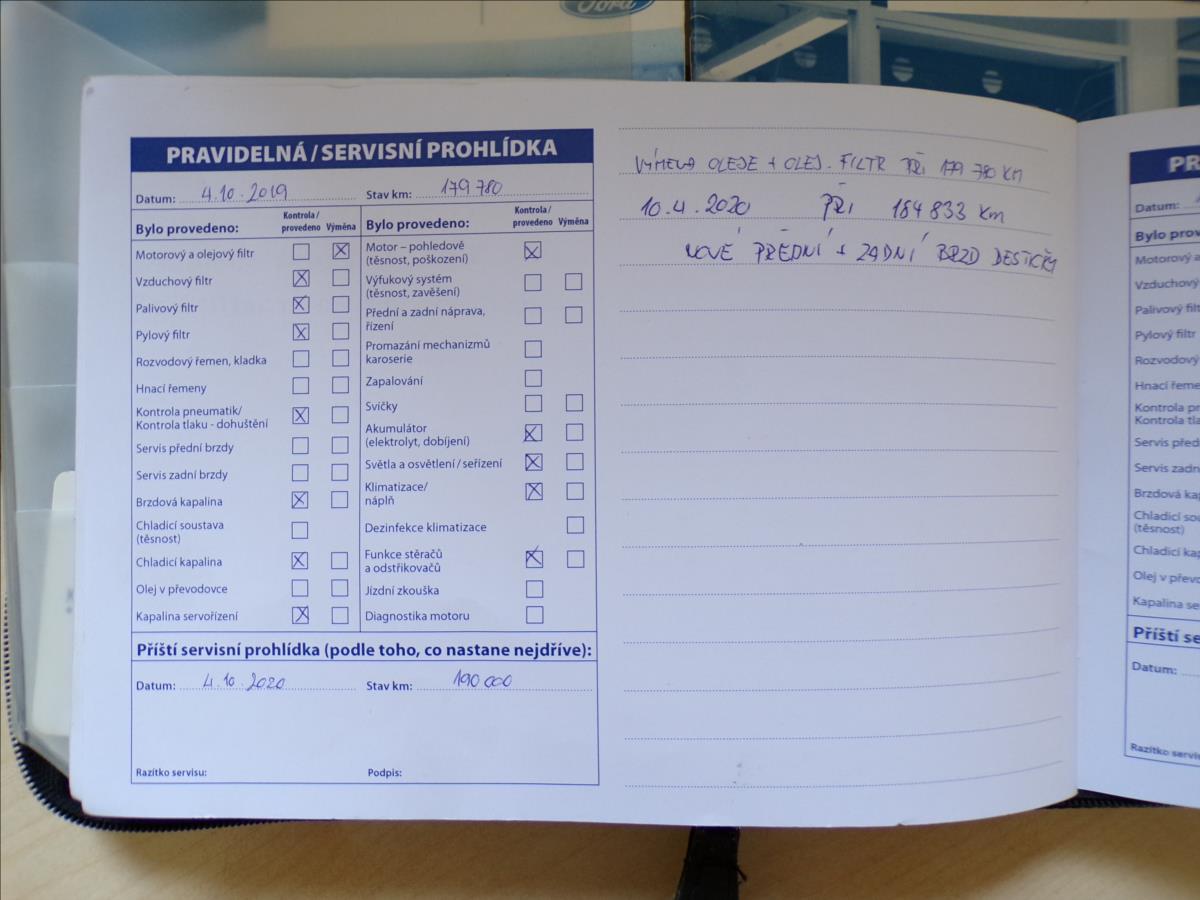 Ford
PRAVIDELNÁ / SERVISNÍ PROHLÍDKA
Datum: 4.10.2019 Stav km: 179 780
Bylo provedeno: Kontrola / provedeno Výměna
Motorový a olejový filtr
Vzduchový filtr
Palivový filtr
Pylový filtr
Rozvodový řemen, kladka
Hnací řemeny
Kontrola pneumatik/
Kontrola tlaku - dohuštění
Servis přední brzdy
Servis zadní brzdy
Brzdová kapalina
Chladicí soustava
(těsnost)
Chladicí kapalina
Olej v převodovce
Kapalina servořízení
Bylo provedeno: Kontrola / provedeno Výměna
Motor – pohledově
(těsnost, poškození)
Výfukový systém
(těsnost, zavěšení)
Přední a zadní náprava,
řízení
Promazání mechanizmů
karoserie
Zapalování
Svíčky
Akumulátor
(elektrolyt, dobíjení)
Světla a osvětlení / seřízení
Klimatizace/
náplň
Dezinfekce klimatizace
Funkce stěračů
a odstřikovačů
Jízdní zkouška
Diagnostika motoru
Příští servisní prohlídka (podle toho, co nastane nejdříve):
Datum: 4.10.2020 Stav km: 190 000
Razítko servisu: Podpis:
VÝMĚNA OLEJE + OLEJ. FILTR PŘI 179 780 KM
10.4.2020 PŘI 184 833 KM
NOVÉ PŘEDNÍ + ZADNÍ BRZD DESTIČKY
PR
Datum:
Bylo prov
Motorový a
Vzduchový
Palivový filt
Pylový filtr
Rozvodový
Hnací řeme
Kontrola pn
Kontrola tla
Servis před
Servis zadn
Brzdová ka
Chladicí sou
(těsnost)
Chladicí kap
Olej v přev
Kapalina se
Příští se
Datum:
Razítko servis